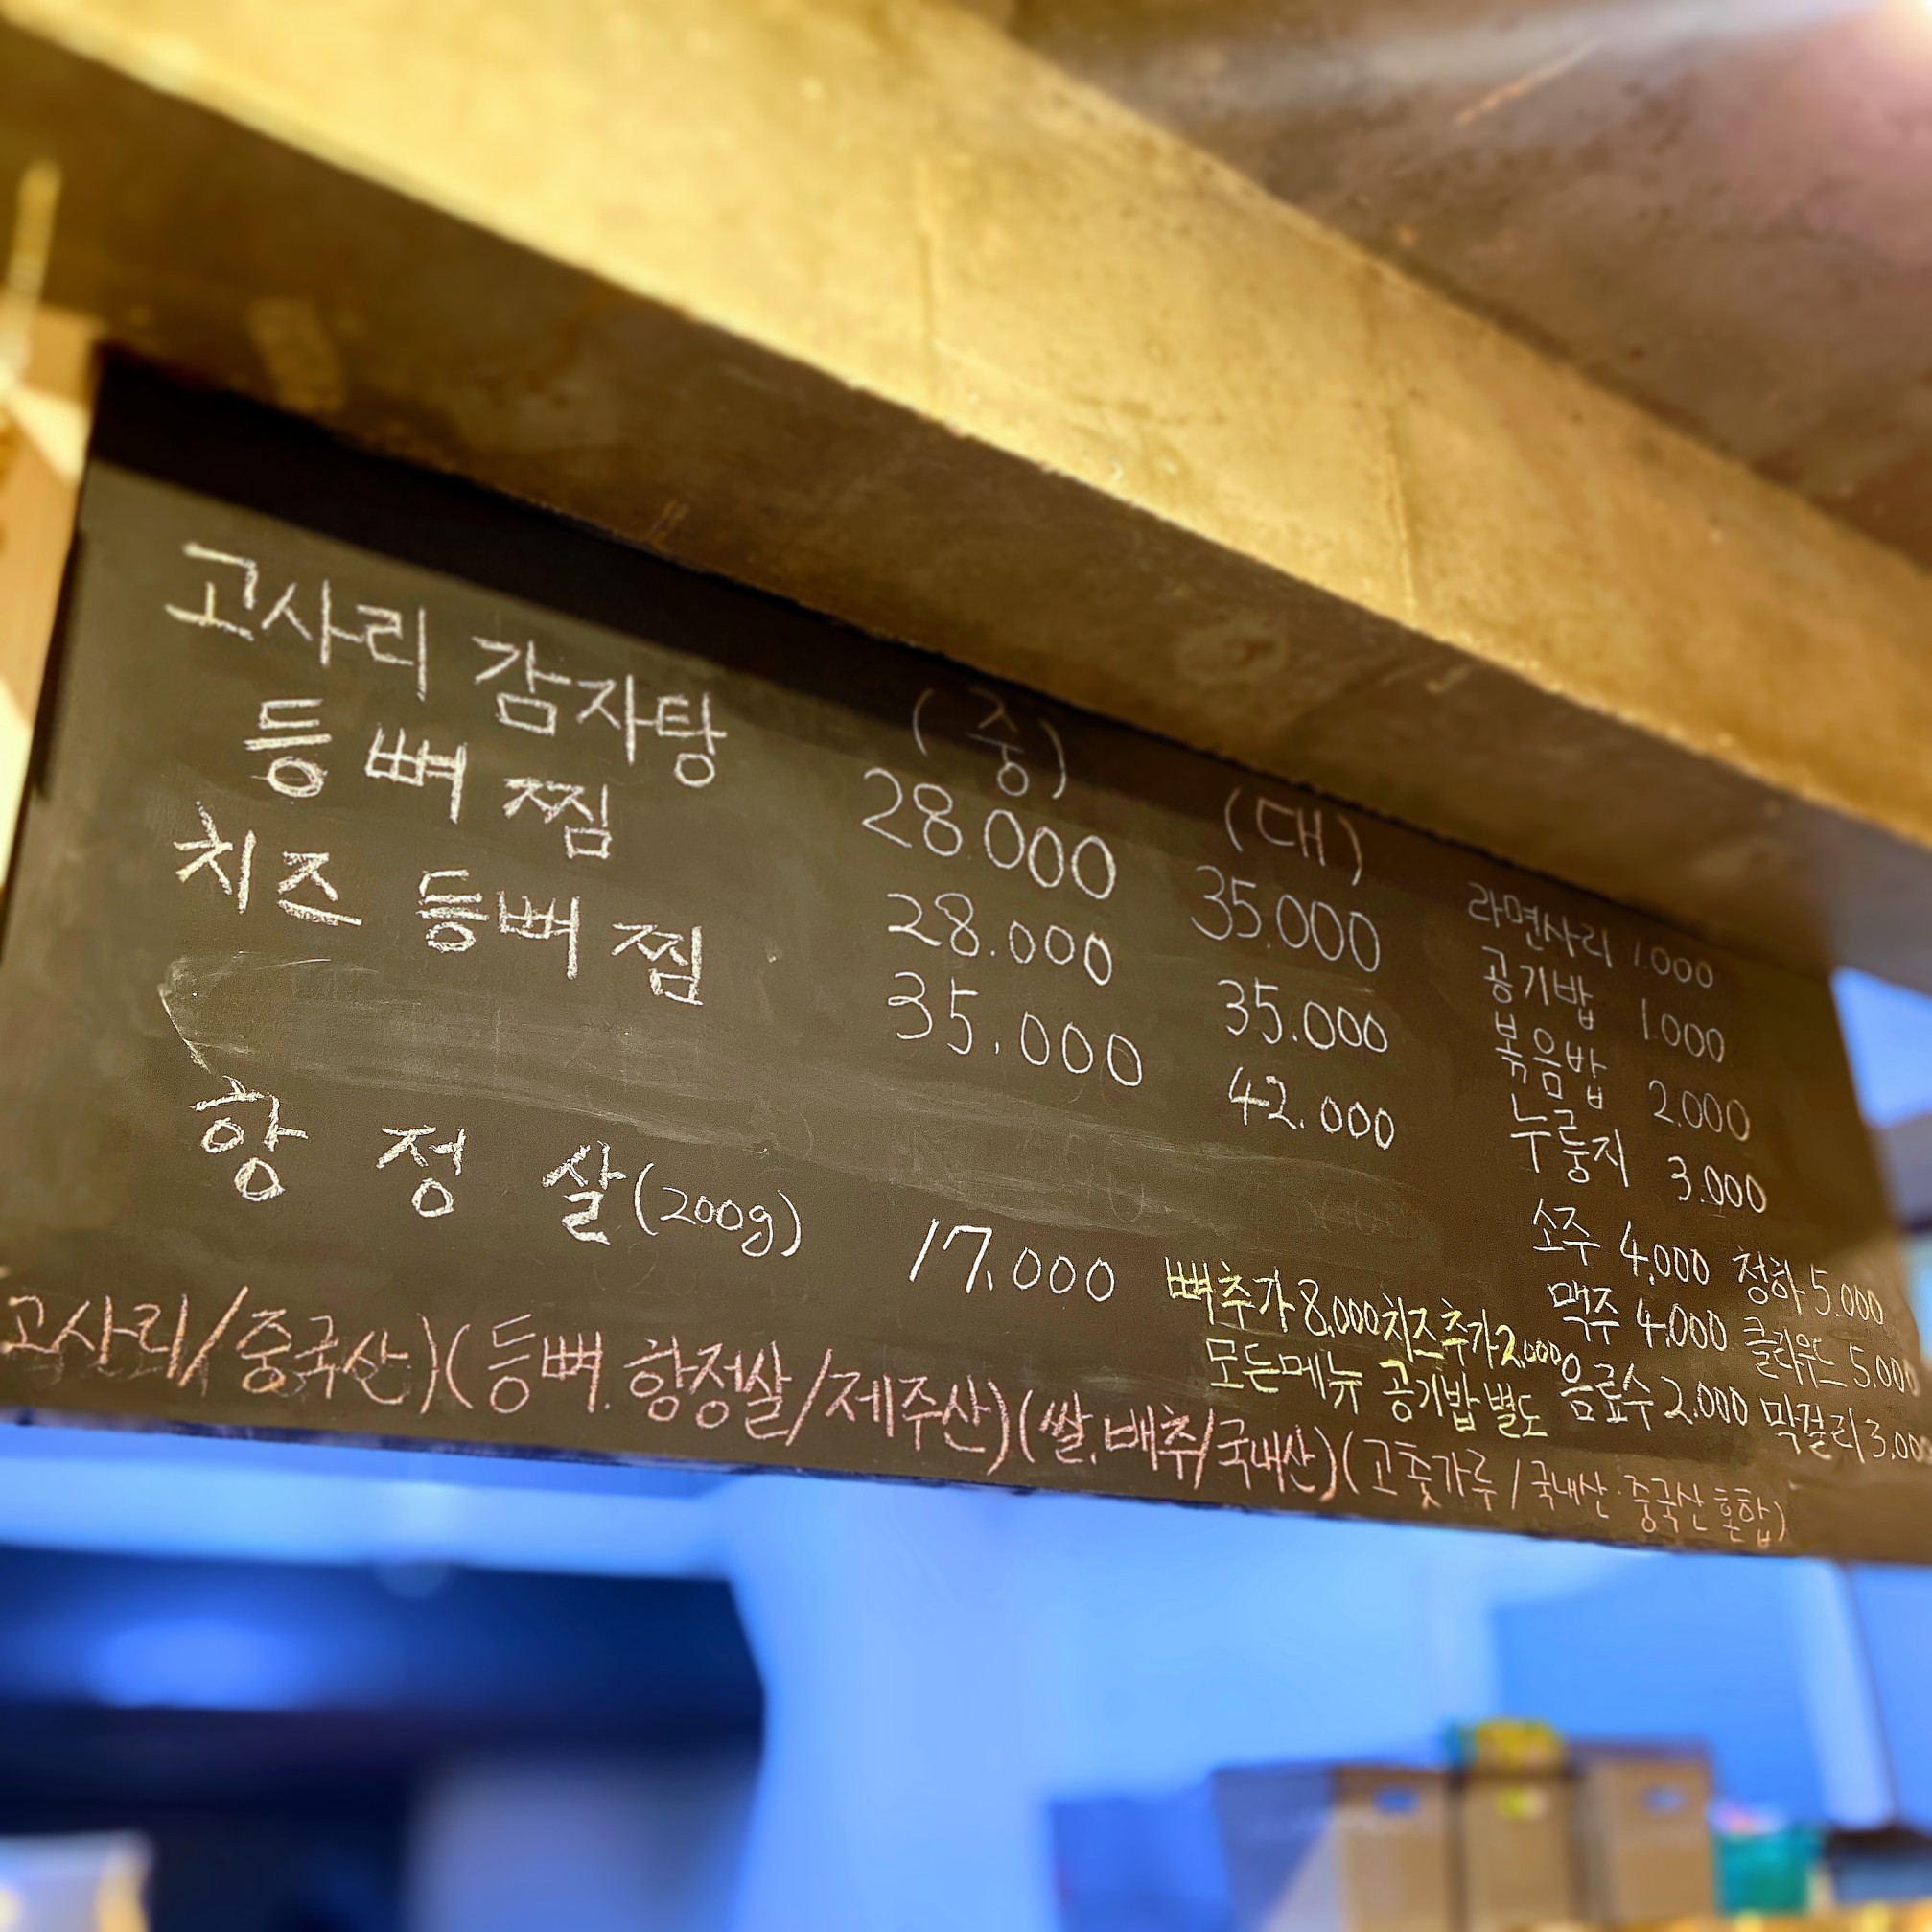 (중) (대)
고사리 감자탕 28000 35.000
등뼈찜 28.000 35.000
치즈 등뼈찜 35.000 42.000
항정살(200g) 17.000
라면사리 1.000
공기밥 1.000
볶음밥 2.000
누룽지 3.000
소주 4.000 청하 5.000
맥주 4.000 클라우드 5.000
음료수 2.000 막걸리 3.000
뼈추가 8.000 치즈추가 2.000
모든메뉴 공기밥 별도
고사리/중국산)(등뼈.항정살/제주산)(쌀.배추/국내산)(고춧가루/국내산·중국산혼합)